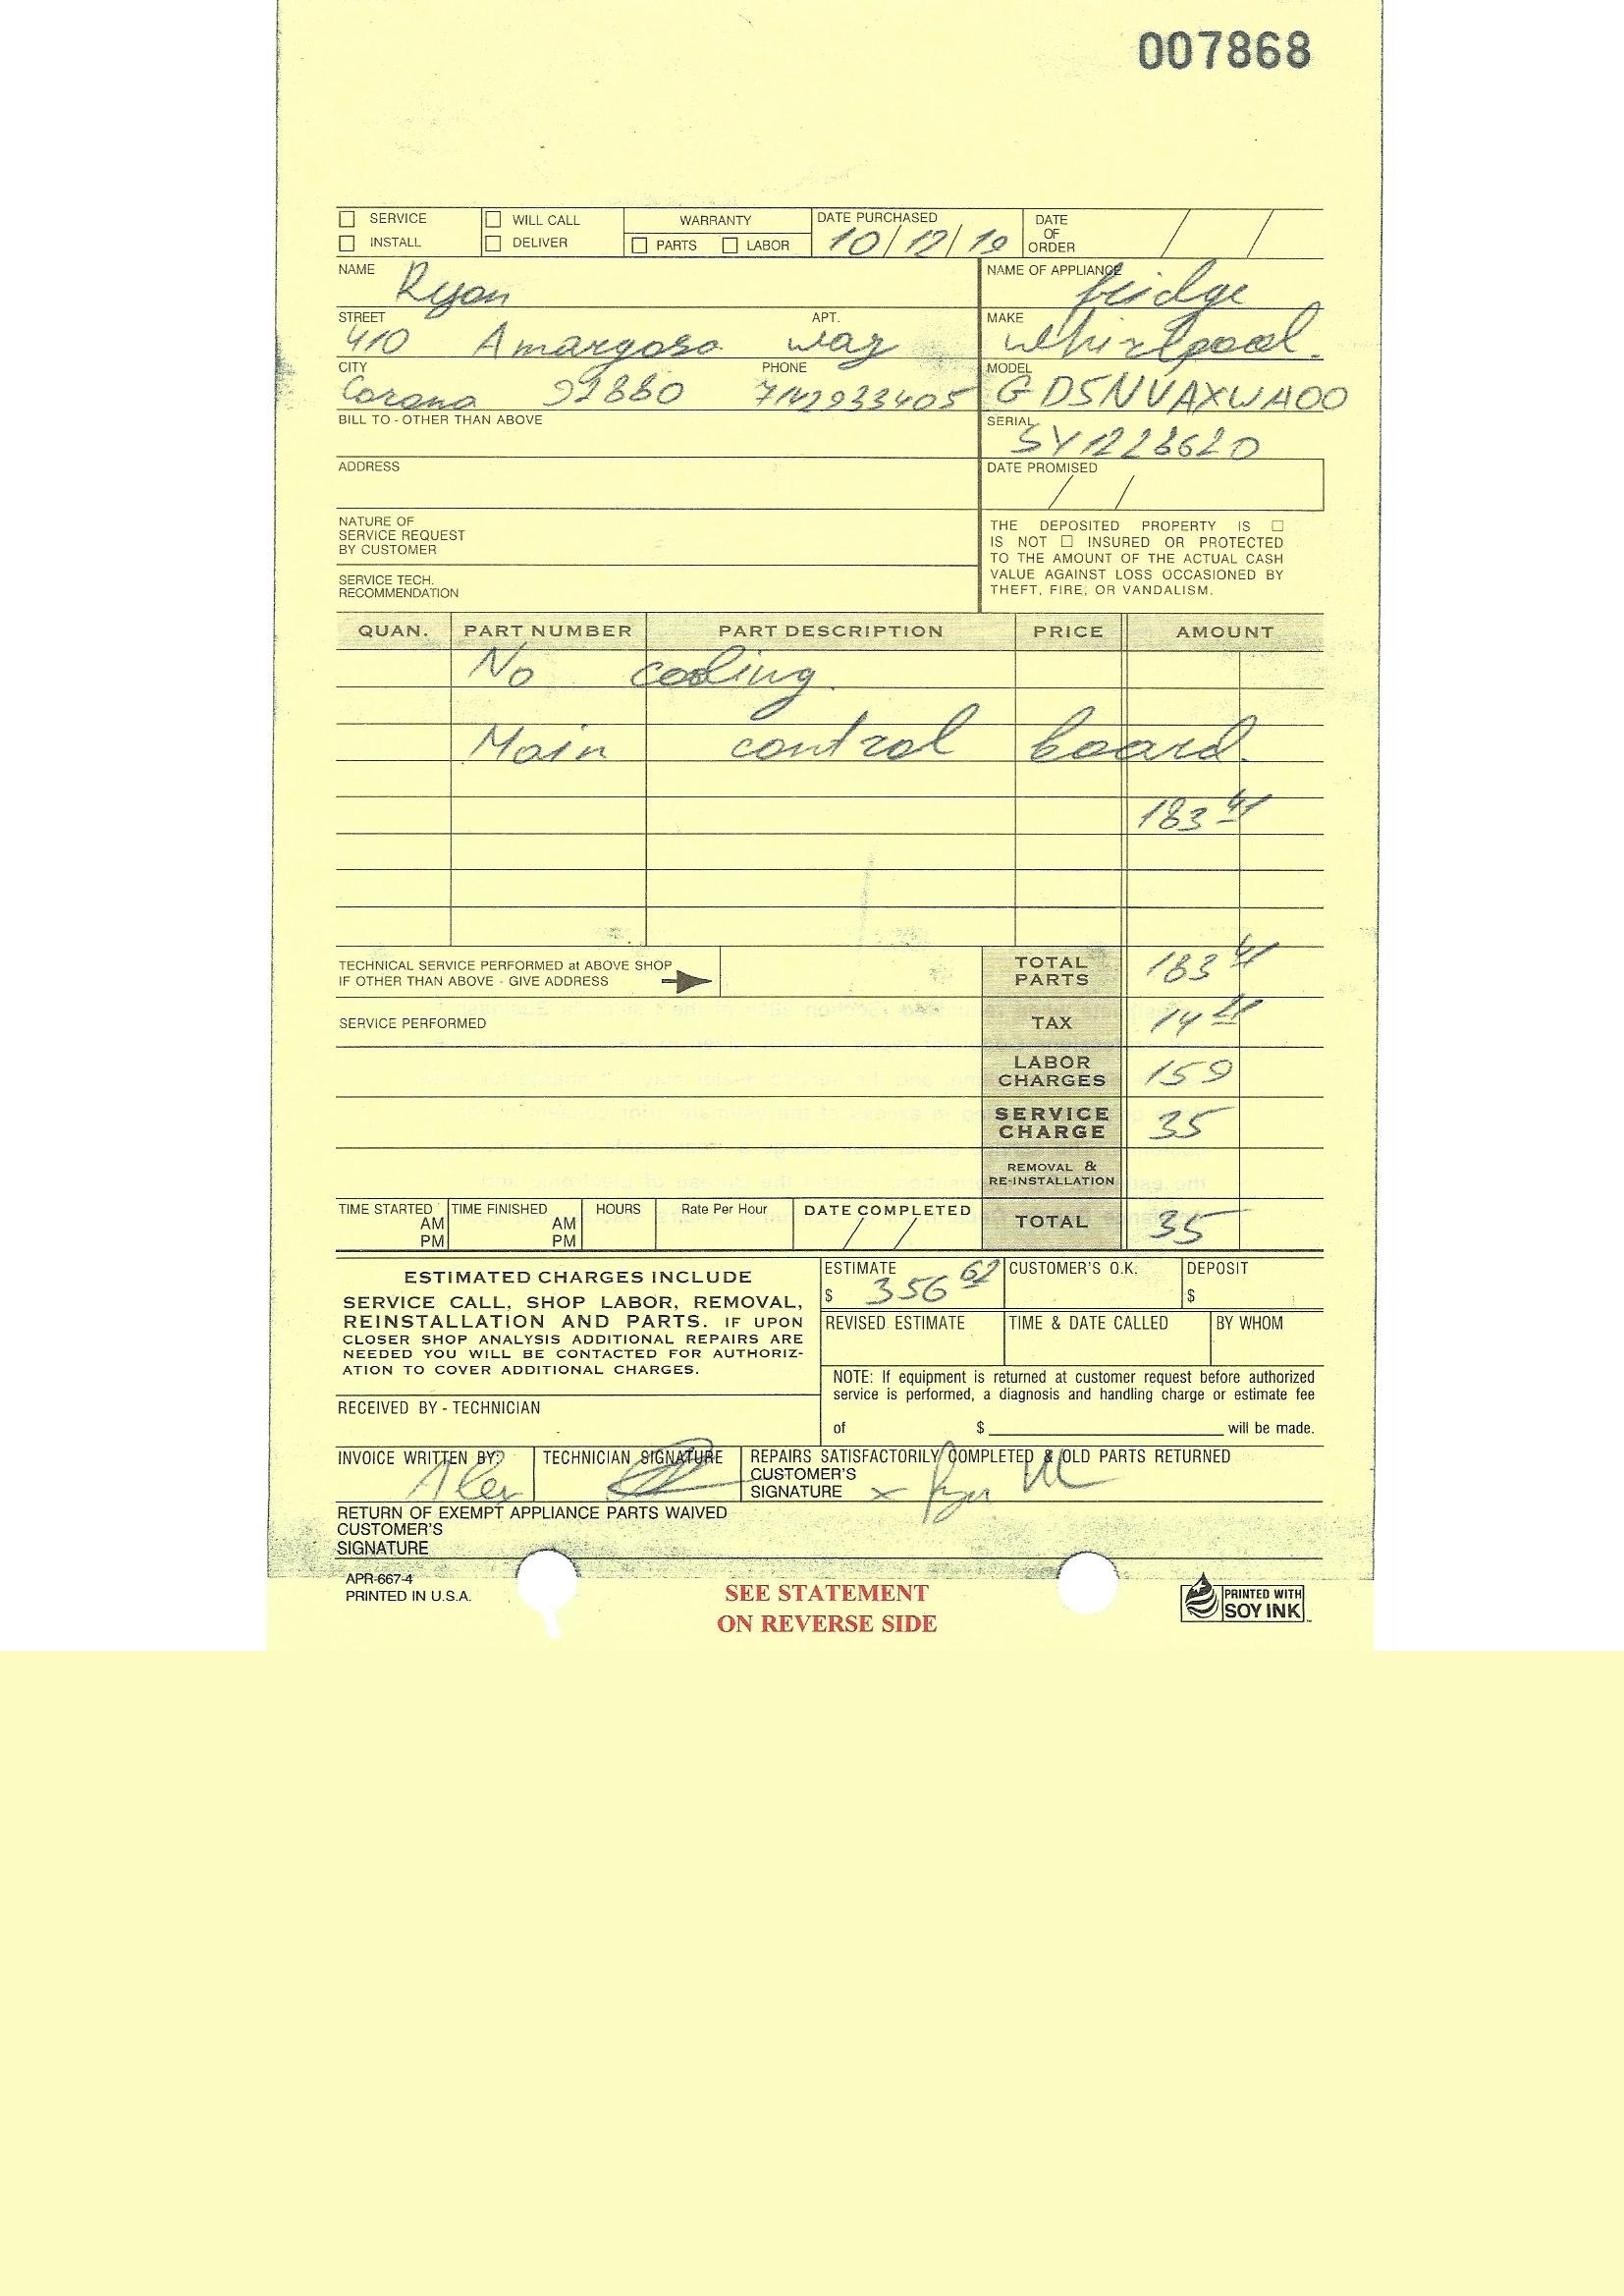 007868
SERVICE WILL CALL WARRANTY DATE PURCHASED DATE OF ORDER
INSTALL DELIVER PARTS LABOR 10/12/19 / /
NAME Ryan
NAME OF APPLIANCE fridge
STREET 410 Amargosa APT. way
MAKE Whirlpool.
CITY Corona 92880 PHONE 7142933405
MODEL GD5NVAXWA00
BILL TO - OTHER THAN ABOVE
SERIAL SY1228620
ADDRESS
DATE PROMISED / /
NATURE OF
SERVICE REQUEST
BY CUSTOMER
SERVICE TECH.
RECOMMENDATION
THE DEPOSITED PROPERTY IS ☐
IS NOT ☐ INSURED OR PROTECTED
TO THE AMOUNT OF THE ACTUAL CASH
VALUE AGAINST LOSS OCCASIONED BY
THEFT, FIRE, OR VANDALISM.
QUAN. PART NUMBER PART DESCRIPTION PRICE AMOUNT
No cooling.
Main control board.
183 41
TECHNICAL SERVICE PERFORMED at ABOVE SHOP
IF OTHER THAN ABOVE - GIVE ADDRESS
TOTAL PARTS 183 41
SERVICE PERFORMED
TAX 14 21
LABOR CHARGES 159
SERVICE CHARGE 35
REMOVAL & RE-INSTALLATION
TIME STARTED AM PM TIME FINISHED AM PM HOURS Rate Per Hour DATE COMPLETED / /
TOTAL 35
ESTIMATED CHARGES INCLUDE
SERVICE CALL, SHOP LABOR, REMOVAL,
REINSTALLATION AND PARTS. IF UPON
CLOSER SHOP ANALYSIS ADDITIONAL REPAIRS ARE
NEEDED YOU WILL BE CONTACTED FOR AUTHORIZ-
ATION TO COVER ADDITIONAL CHARGES.
ESTIMATE $ 356 62 CUSTOMER'S O.K. DEPOSIT $
REVISED ESTIMATE TIME & DATE CALLED BY WHOM
NOTE: If equipment is returned at customer request before authorized
service is performed, a diagnosis and handling charge or estimate fee
of $ will be made.
RECEIVED BY - TECHNICIAN
INVOICE WRITTEN BY: Alex TECHNICIAN SIGNATURE REPAIRS SATISFACTORILY COMPLETED & OLD PARTS RETURNED
CUSTOMER'S
SIGNATURE x
RETURN OF EXEMPT APPLIANCE PARTS WAIVED
CUSTOMER'S
SIGNATURE
APR-667-4
PRINTED IN U.S.A.
SEE STATEMENT
ON REVERSE SIDE
PRINTED WITH
SOY INK